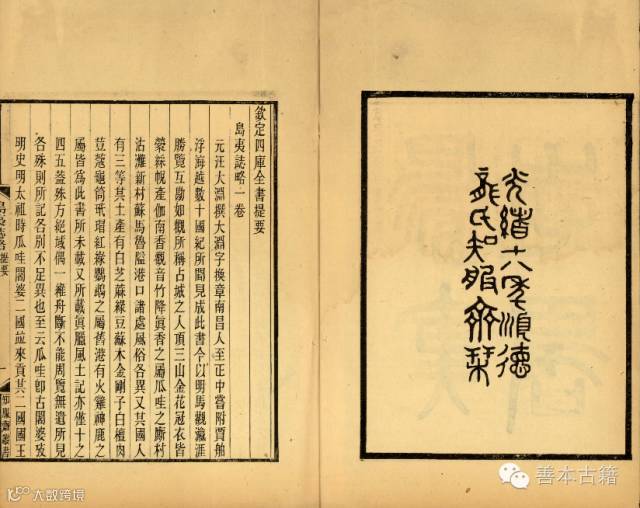 光緒十八年順德
龍氏知服齋栞
欽定四庫全書提要
島夷誌略一卷
元汪大淵撰大淵字換章南昌人至正中嘗附賈舶
浮海越數十國紀所聞見成此書今以明馬觀瀛涯
勝覽互勘如觀所稱占城之人頂三山金花冠衣皆
絲帨產伽南香觀音竹降眞香之屬瓜哇之廝村
沽灘新村蘇馬魯隘港口諸處風俗各異又其國人
有三等其土產有白芝蔴綠豆蘇木金剛子白檀肉
荳蔻龜筒玳瑁紅綠鸚鵡之屬舊港有火雞神鹿之
屬皆爲此書所未載又所載眞臘風土記亦僅十之
四五蓋殊方絕域偶一維舟斷不能周覽無遺所見
各殊則所記各別不足異也至云瓜哇卽古闍婆攷
明史明太祖時瓜哇闍婆二國並來貢其二國國王
島夷誌略 提要
一
知服齋叢書
大数跨境
善本古籍